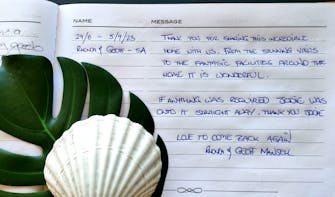 NAME MESSAGE
29/8 - 5/9/23 THANK YOU FOR SHARING THIS INCREDIBLE
RHONDA & GEOFF - SA HOME WITH US. FROM THE STUNNING VIEWS
TO THE FANTASTIC FACILITIES AROUND THE
HOME IT IS WONDERFUL.
IF ANYTHING WAS REQUIRED JODIE WAS
ONTO IT STRAIGHT AWAY. THANK YOU JODIE
LOVE TO COME BACK AGAIN
RHONDA & GEOFF